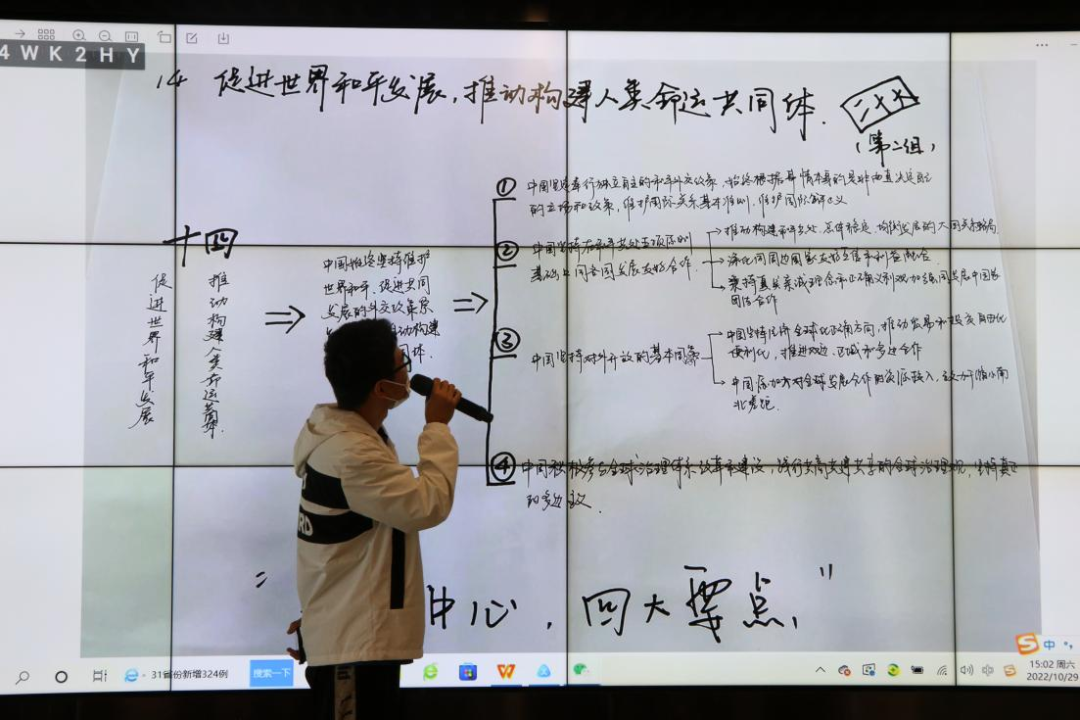 4WK2HY
14 促进世界和平发展，推动构建人类命运共同体．
二十大
（第二组）
十四
促进世界和平发展
推动构建人类命运
中国始终坚持维护
世界和平、促进共同
发展的外交政策
推动构建
体．
① 中国坚定奉行独立自主的和平外交政策，始终根据事情本身的是非曲直决定自己
的立场和政策，维护国际关系基本准则，维护国际
② 中国坚持在和平共处五项原则
基础上同各国发展友好合作
推动构建和平共处、总体稳定、均衡发展的大国关系格局
深化同周边国家友好互信和利益融合
秉持真实亲诚理念和正确义利观加强同发展中国家
团结合作
③ 中国坚持对外开放的基本国策
中国坚持经济全球化正确方向，推动贸易和投资自由化
便利化，推进双边、区域和多边合作
中国 加大对全球发展合作的资源投入，致力于缩小南
北差距．
④ 中国积极参与全球治理体系改革和建设，践行共商共建共享的全球治理观，坚持真正
的多边主义．
" 中心，四大要点"
31省份新增324例
搜索一下
中
15:02 周六
2022/10/29